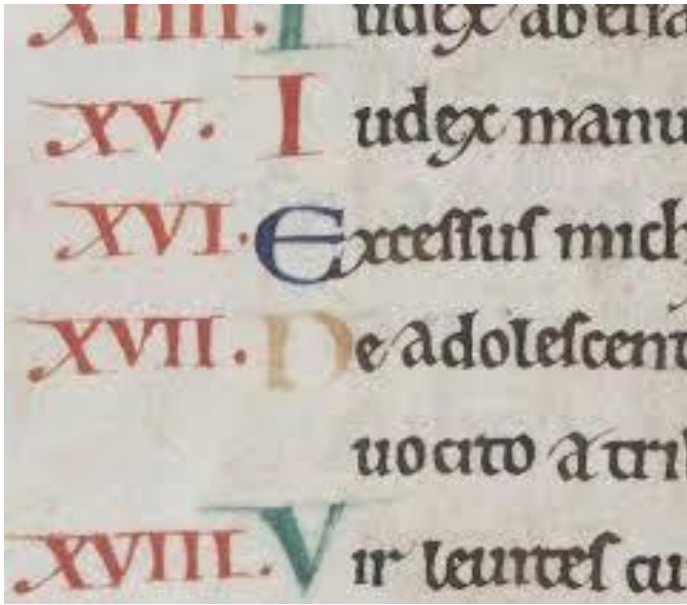 XIIII. Iudex aberra
XV. Iudex manu
XVI. Excessus mich
XVII. De adolescent
uocato a tri
XVIII. Vir leuites cu